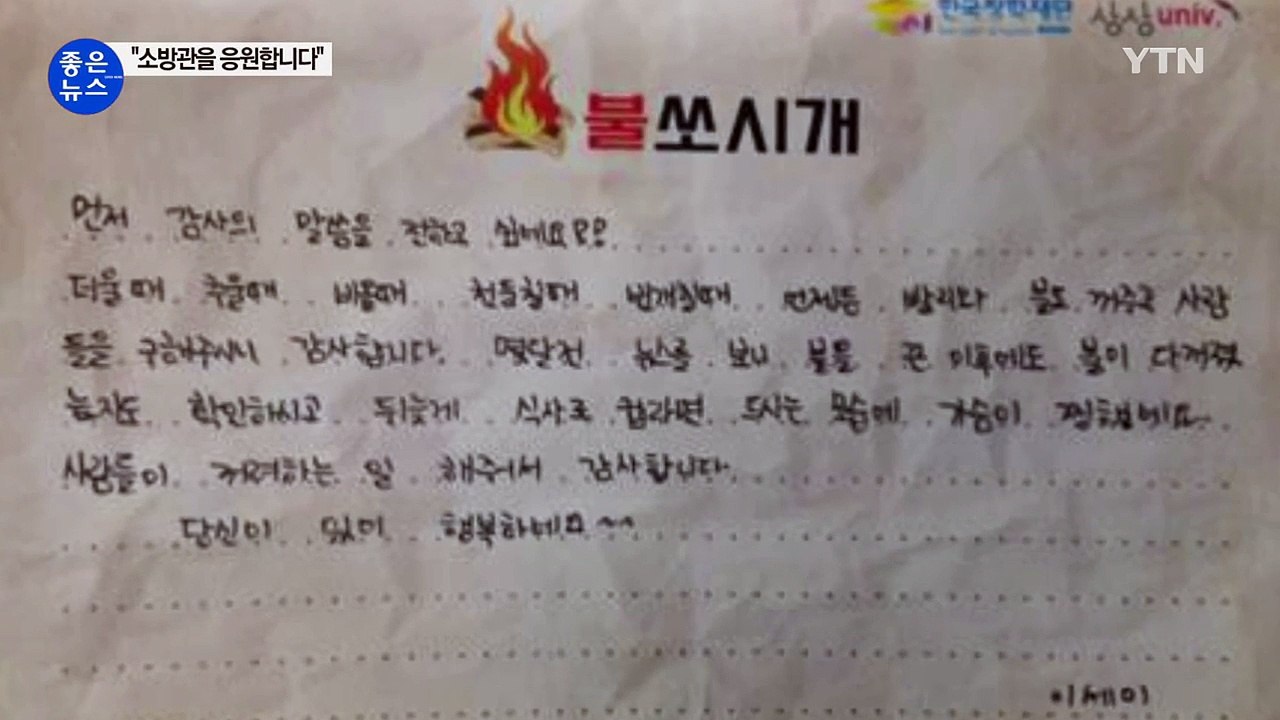 한국장학재단 상상univ.
좋은
뉴스
"소방관을 응원합니다"
YTN
불쏘시개
먼저 감사의 말씀을 전하고 싶네요??
더울때 추울때 비올때 천둥칠때 번개칠때 언제든 달려와 불도 꺼주고 사람
들을 구해주셔서 감사합니다. 몇달전 뉴스를 보니 불을 끈 이후에도 불이 다꺼졌
늠지도 확인하시고 뒤늦게 식사로 컵라면 드시는 모습에 가슴이 찡했네요..
사람들이 꺼려하는 일 해주셔서 감사합니다.
당신이 있어 행복하네요 ^^
이세미